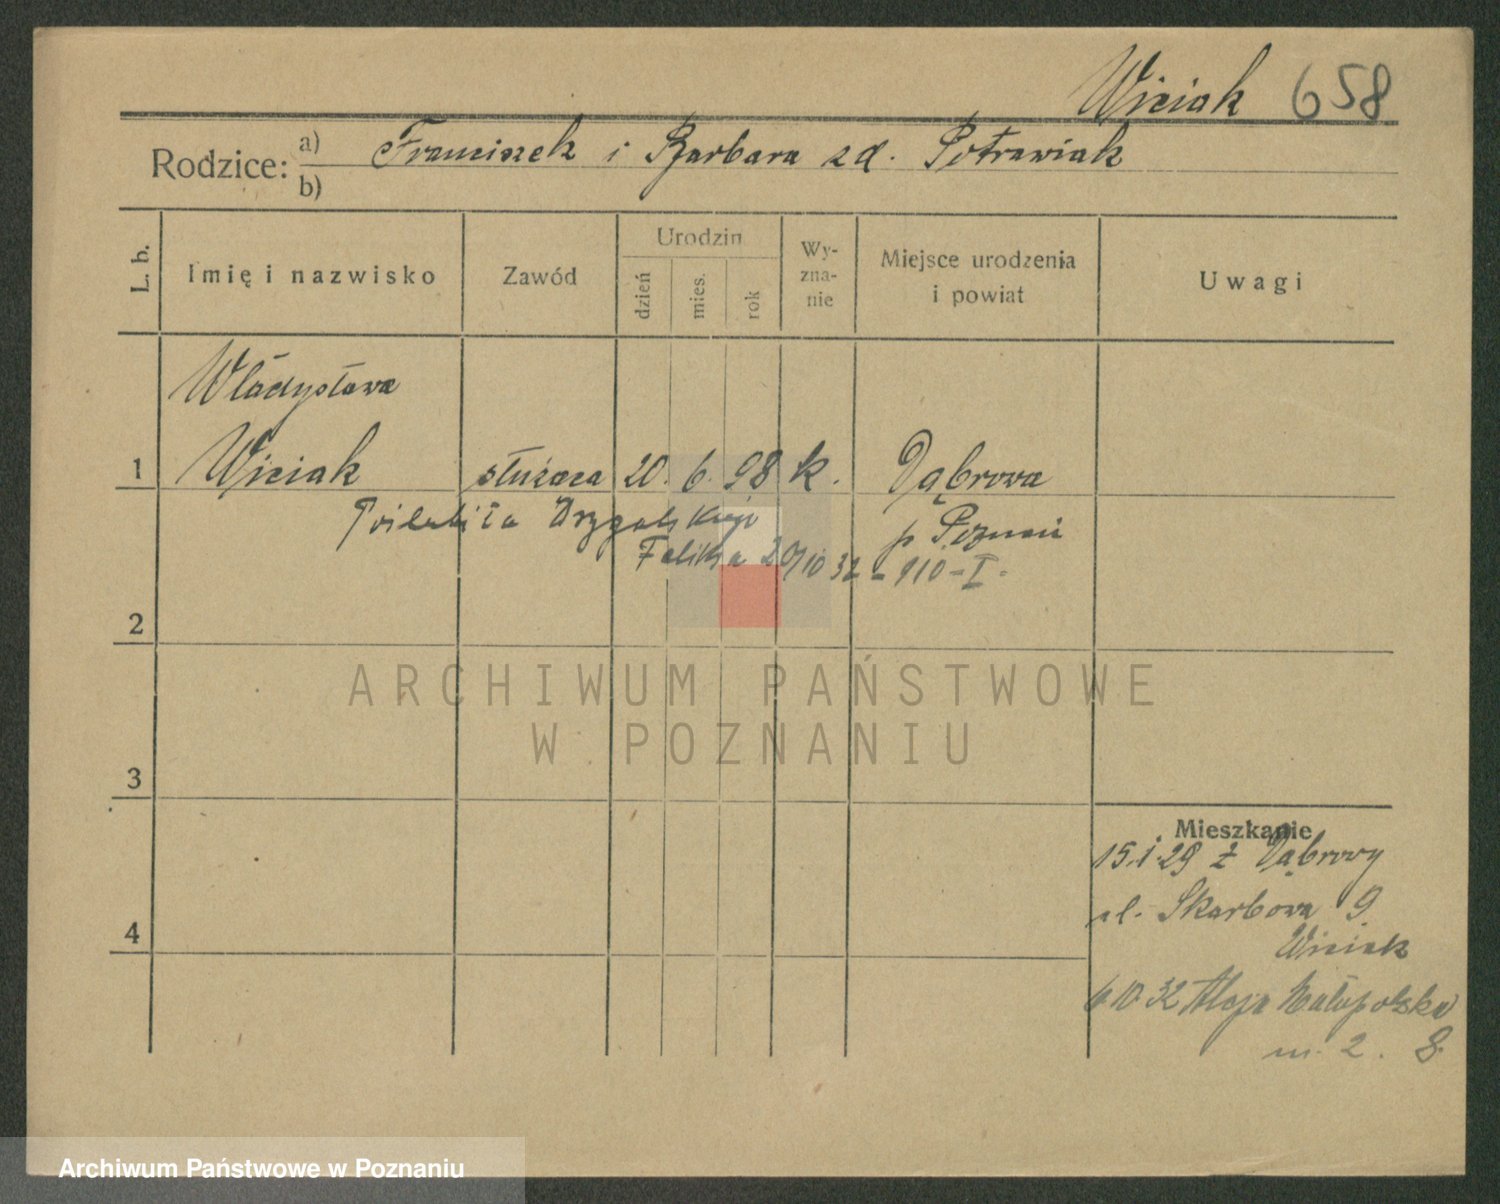 Wiciak 658
Rodzice: a) Franciszek i Barbara zd. Potrawiak
b)
L. b. Imię i nazwisko Zawód Urodzin dzień mies. rok Wyznanie Miejsce urodzenia i powiat Uwagi
Władysława
1 Wiciak służąca 20. 6. 98 k. Dąbrowa
Drygalskiej p Poznań
Feliksa 29/10 32 - 910 - I.
2
3
4
Mieszkanie
15.1.29 z Dąbrowy
ul. Skarbowa 9
Wiciak
6 10 32 Aleja Małopolska
m. 2. 8
ARCHIWUM PAŃSTWOWE
W POZNANIU
Archiwum Państwowe w Poznaniu